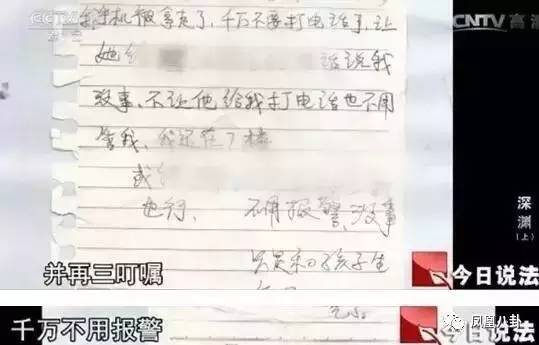 CCTV
CNTV 高清
手机被拿走了，千万不要打电话了，让
她
话说我
没事、不让他给我打电话也不用
管我、我还在7楼
或
也行、 不用报警、没事
只是和孩子生
深渊
（上）
并再三叮嘱
今日说法
千万不用报警
凤凰八卦
今日说法